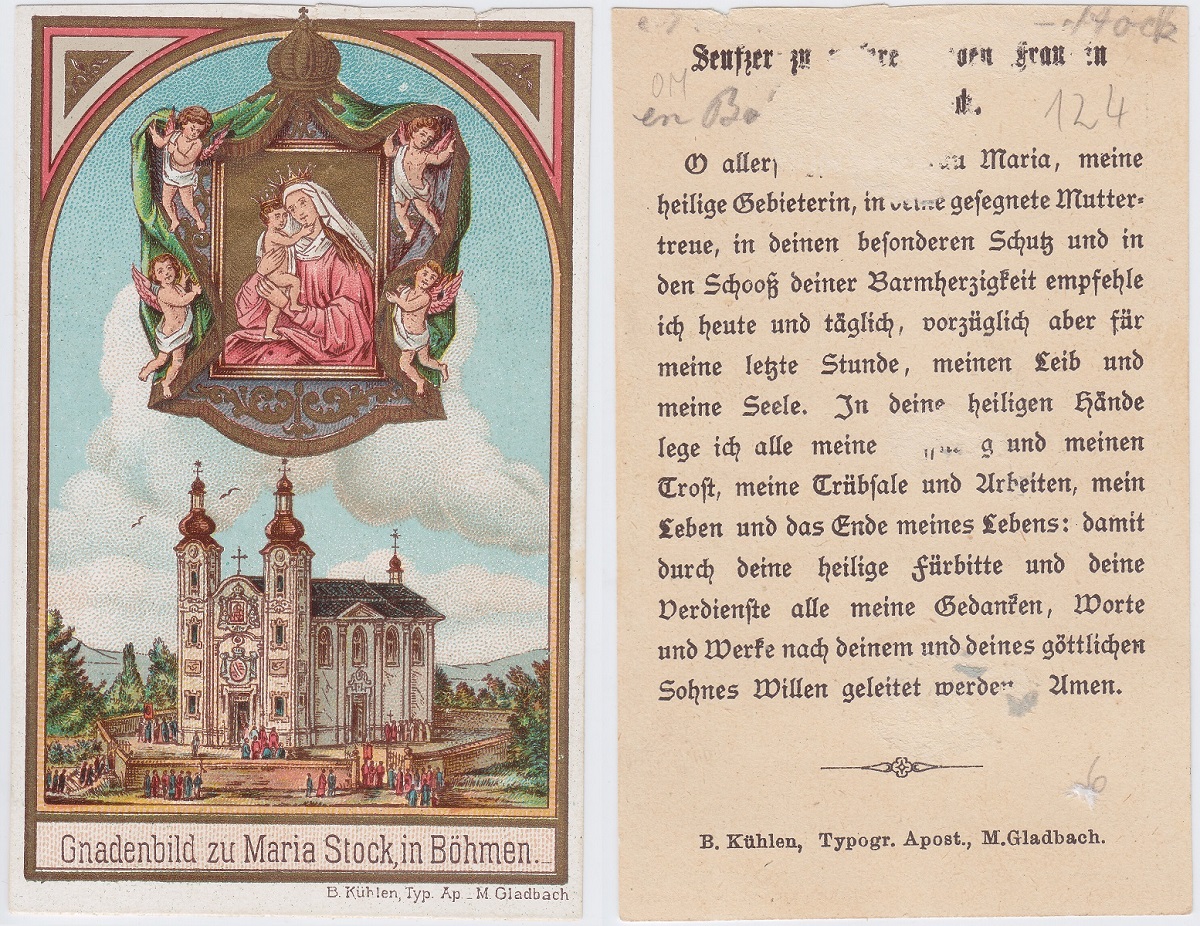 Gnadenbild zu Maria Stock, in Böhmen.
B. Kühlen, Typ. Ap _ M. Gladbach
Stock
Seufzer zu Frau in
OM
en Bö 124
O Maria, meine
heilige Gebieterin, in deine gesegnete Mutter-
treue, in deinen besonderen Schutz und in
den Schooß deiner Barmherzigkeit empfehle
ich heute und täglich, vorzüglich aber für
meine letzte Stunde, meinen Leib und
meine Seele. In deine heiligen Hände
lege ich alle meine und meinen
Trost, meine Trübsale und Arbeiten, mein
Leben und das Ende meines Lebens: damit
durch deine heilige Fürbitte und deine
Verdienste alle meine Gedanken, Worte
und Werke nach deinem und deines göttlichen
Sohnes Willen geleitet werden. Amen.
6
B. Kühlen, Typogr. Apost., M.Gladbach.